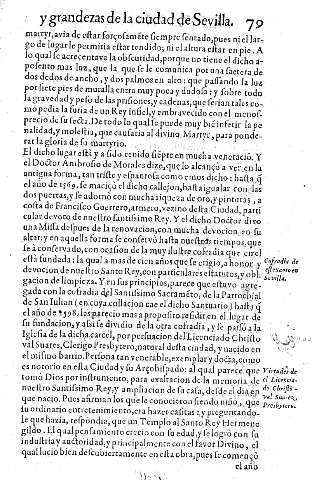 y grandezas de la ciudad de Sevilla. 79
martyr, avia de estar forçosamẽte siempre sentado, pues ni el lar-
go de lugar le permitia estar tendido; ni el altura estar en pie. A
lo qual se acrecentava la obscuridad, porque no tiene el dicho a-
posento mas luz, que la que se le comunica por una saetera de
dos dedos de ancho, y dos palmos en alto: que passando la luz
por siete pies de muralla entra muy poca y dudosa; y sobre todo
la gravedad y peso de las prisiones, y cadenas, que serian tales co-
mo pedia la furia de un Rey infiel, y embravecido con el menos-
precio de su secta. De todo lo qual se puede muy biẽ inferir la pe-
nalidad, y molestia, que causaria al divino Martyr, para ponde-
rar la gloria de su martyrio.
El dicho lugar està y a sido tenido siẽpre en mucha veneraciõ. Y
el Doctor Ambrosio de Morales dize, que lo alcançò a ver en la
antigua forma, tan triste y espantosa como emos dicho: hasta q̃
el año de 1569. se maciçò el dicho callejon, hasta igualar con las
dos puertas, y se adornò con mucha riqueza de oro, y pinturas, a
costa de Francisco Guerrero, armero, vezino desta Ciudad, parti
cular devoto de nuestro santissimo Rey. Y el dicho Doctor dixo
una Missa despues de la renovacion, con mucha devocion, en su
altar: y en aquella forma se conservò hasta nuestros tiempos, que
se à conservado, con ocasion de la muy ilustre cofradia que en el
està fundada: la qual a mas de cien años que se erigio, a honor y
devocion de nuestro Santo Rey, con particulares estatutos, y obli
gacion de limpieza. Y en sus principios, parece que estuvo agre-
gada con la cofradia del Santissimo Sacramẽto, de la Parrochial
de San Iulian (en cuya collacion cae el dicho Santuario) hasta q̃
el año de 1598. les parecio mas a proposito residir en el lugar de
su fundacion, y assi se dividio de la otra cofradia, y se passò a la
Iglesia de la dicha carcel, por persuasion del Licenciado Christo
val Suarez, Clerigo Presbytero, natural desta ciudad, y nacido en
el mismo barrio. Persona tan venerable, exemplar y docta, como
es notorio en esta Ciudad y su Arçobispado: al qual parece que
tomò Dios por instrumento, para exaltacion de la memoria de
nuestro Santissimo Rey, y ampliacion de su casa, desde el dia en
que nacio. Pues afirman los que le conocieron siendo niño, que
su ordinario entretenimiento, era hazer casitas: y preguntando-
le que hazia, respondia, que un Templo al Santo Rey Hermene
gildo. El qual pensamiento crecio con su edad, y se logrò con su
industria y autoridad, y principalmente con el favor Divino, el
qual lucio bien descubiertamente en esta obra, pues se començò
el año
Cofradia de
esta
Sevilla.
Virtudes de
el Licencia-
do Christo-
val Suarez,
Presbytero.